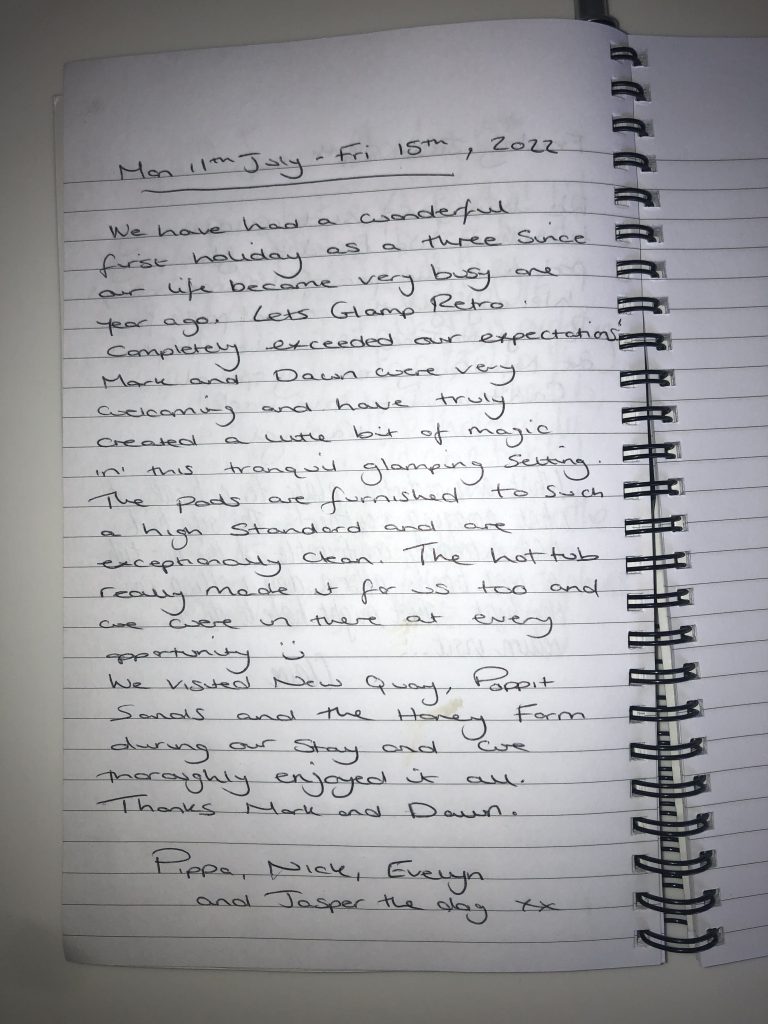 Mon 11th July - Fri 15th, 2022
We have had a wonderful
first holiday as a three since
our life became very busy one
year ago. Lets Glamp Retro
completely exceeded our expectations.
Mark and Dawn were very
welcoming and have truly
created a little bit of magic
in this tranquil glamping setting.
The pods are furnished to such
a high standard and are
exceptionally clean. The hot tub
really made it for us too and
we were in there at every
opportunity ☺
We visited New Quay, Poppit
Sands and the Honey Farm
during our stay and we
thoroughly enjoyed it all.
Thanks Mark and Dawn.
Pippa, Nick, Evelyn
and Jasper the dog xx